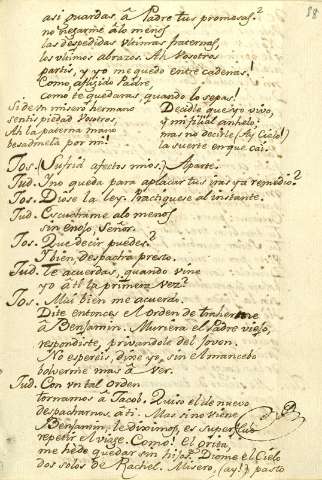 58
asi guardas â Padre tus promesas?
no negarme âlo menos
las despedidas vltimas paternas,
los vltimos abrazos. Ah Vosotros
partis, y yo me quedo entre cadenas!
Como, afligido Padre,
como te quedaras, quando lo sepas!
Si de vn misero hermano
sentis piedad Vosotros,
Ah la paterna mano
besadmela por mi!
Decidle que yo vivo,
y mi filial anhelo:
mas no decirle (Ay Cielo!)
la suerte en que cai.
Jos. (Sufrid afectos mios) Aparte.
Jud. I no queda para aplacar tus iras ya remedio?
Jos. Diose la ley. Practiquese al instante.
Jud. Escuchame alo menos
sin enojo, Señor.
Jos. Que decir puedes?
Y bien, despacha presto.
Jud. Te acuerdas, quando vine
yo â ti la primera vez?
Jos. Mui bien me acuerdo.
Dite entonces el orden de traherme
â Benjamin. Muriera el Padre viejo,
respondiste, privandole del Joven.
No espereis, dixe yo, sin el mancebo
bolverme mas â ver.
Jud. Con vn tal orden
tornamos â Jacob. Quiso el de nuevo
despacharnos â ti. Mas sino viene
Benjamin, le diximos, es superfluo
repetir el viage. Como! El grita,
me hê de quedar sin hijos? Diome el Cielo
dos solos de Rachel. Misero, (ay!) pasto